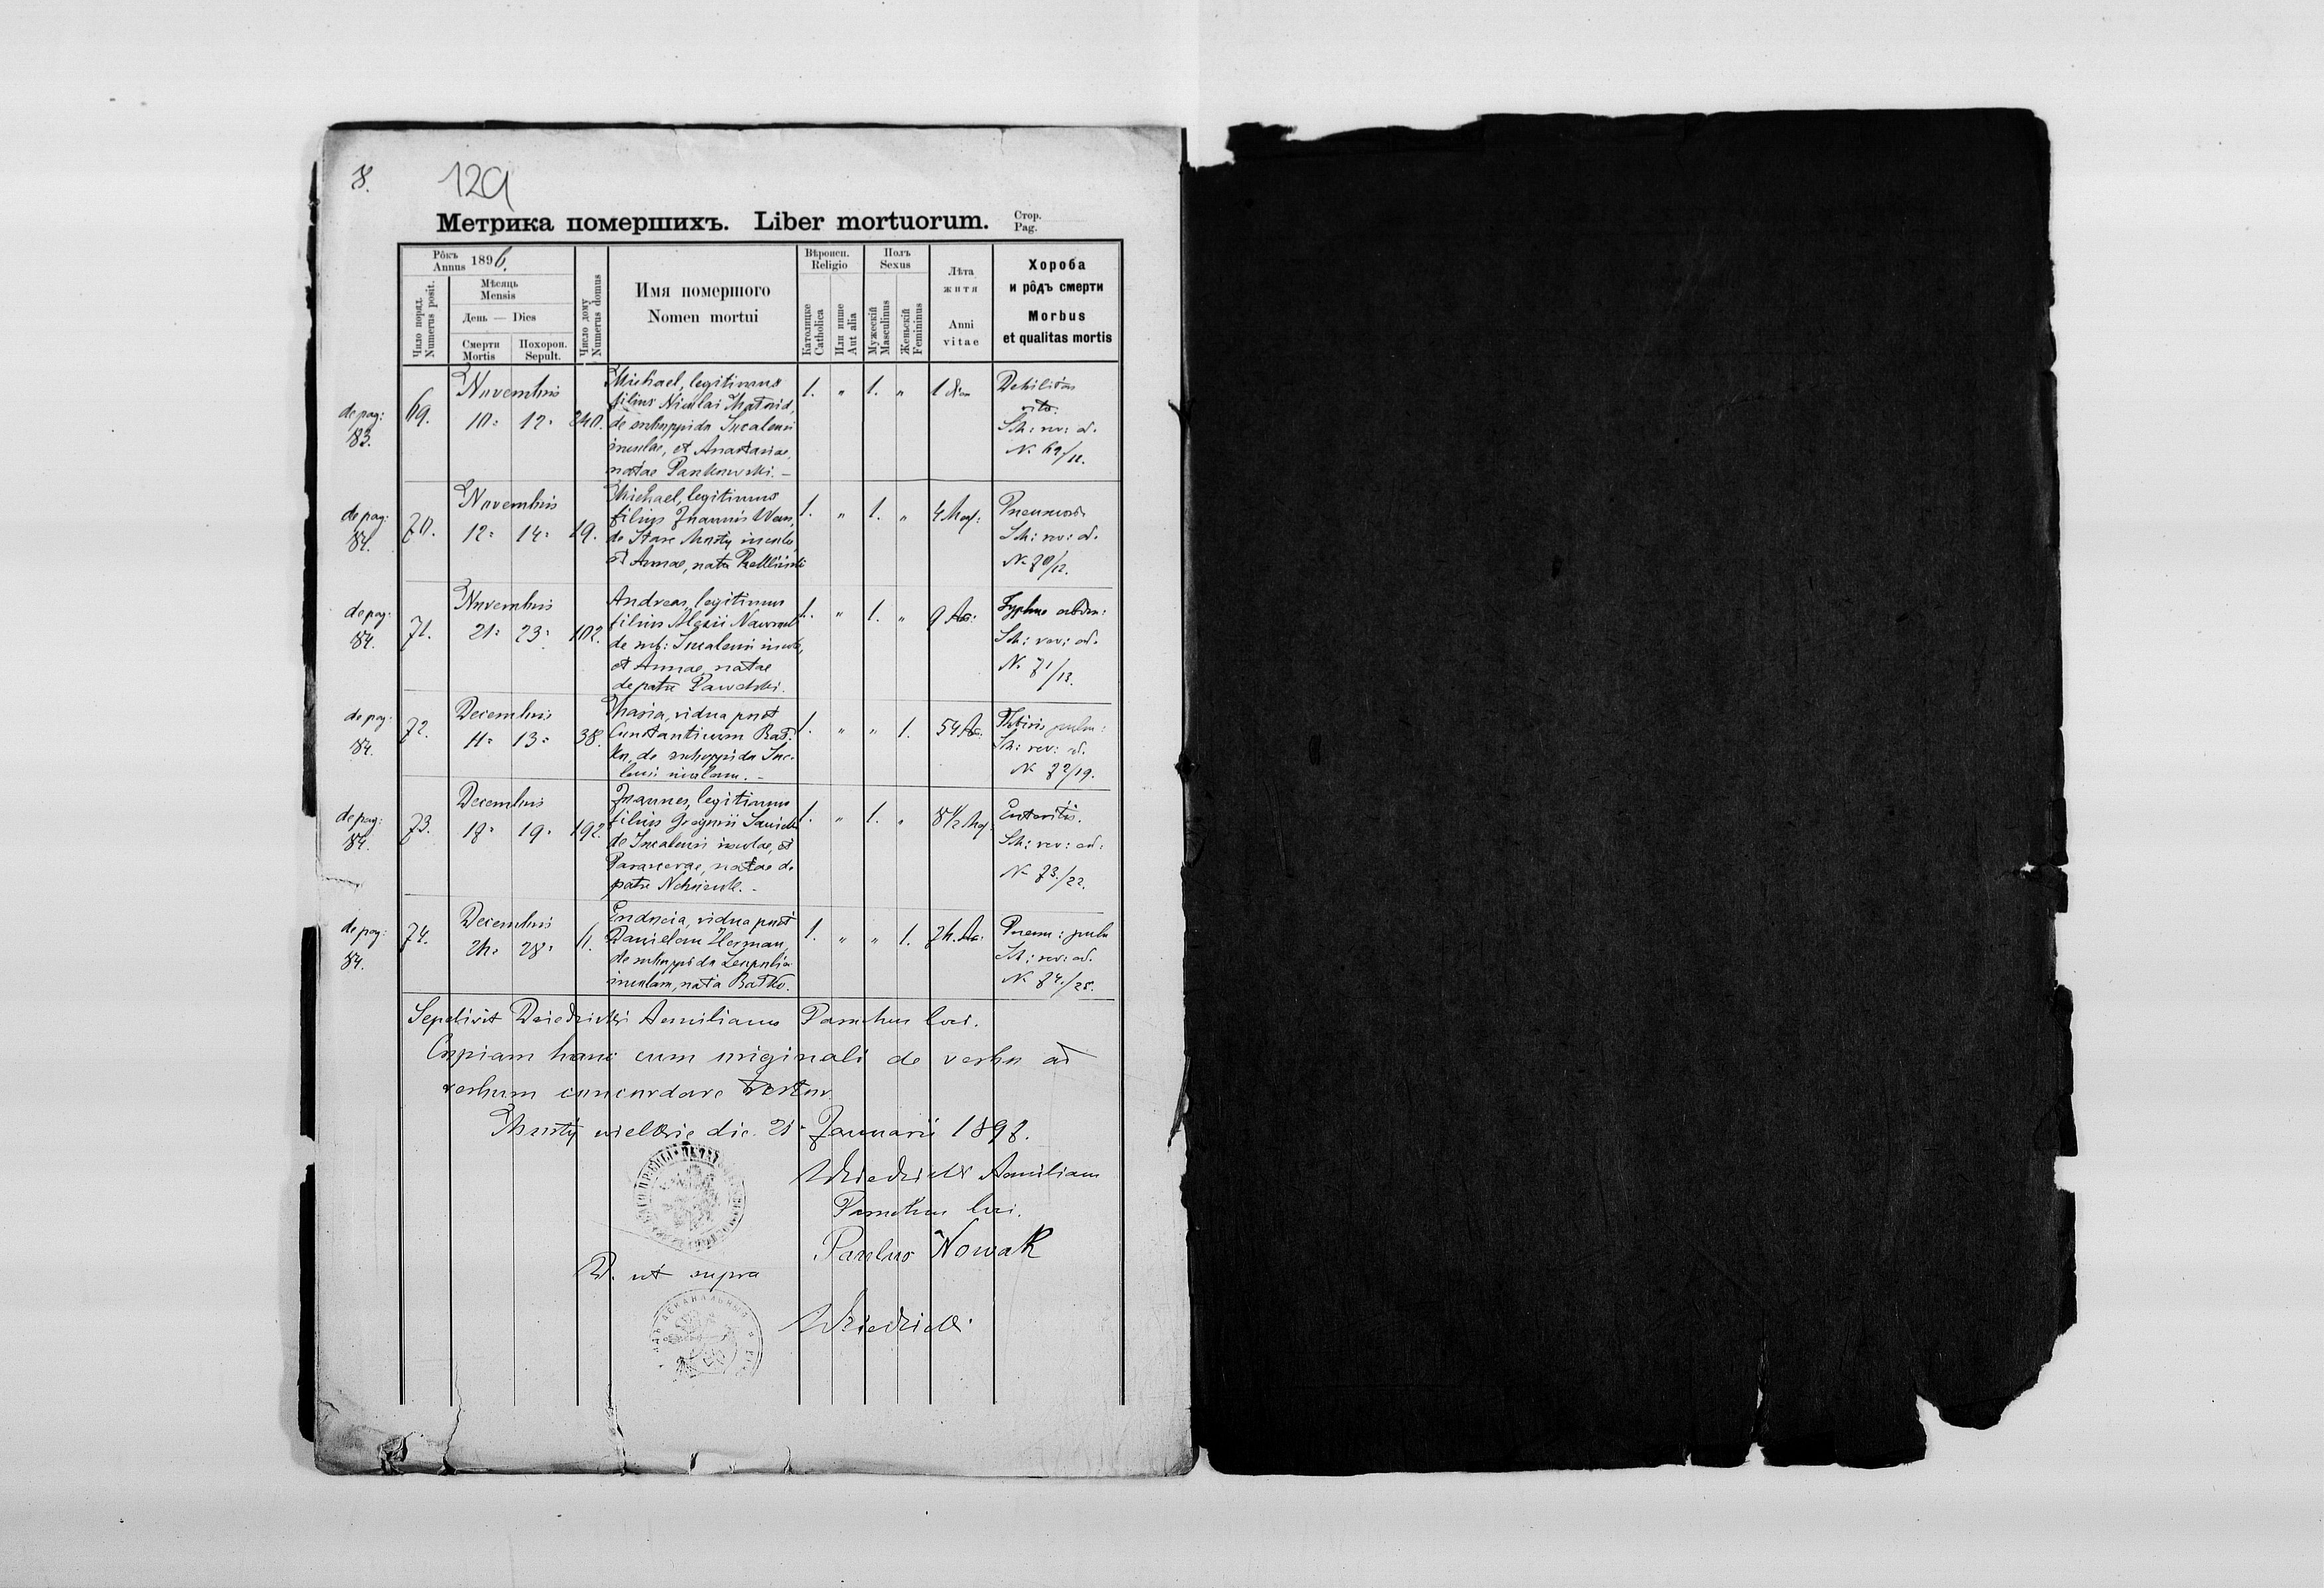 8.
129
Метрика помершихъ. Liber mortuorum.
Стор.
Pag.
Рôкъ
Annus 1896.
Число поряд.
Numerus posit.
Мѣсяць
Mensis
День — Dies
Смерти
Mortis
Похорон.
Sepult.
Число дому
Numerus domus
Имя помершого
Nomen mortui
Вѣроисп.
Religio
Католицке
Catholica
Или инше
Aut alia
Полъ
Sexus
Мужескій
Masculinus
Женьскій
Femininus
Лѣта
житя
Anni
vitae
Хороба
и рôдъ смерти
Morbus
et qualitas mortis
de pag: 83.
69. Novembris 10. 12. 240.
Michael, legitimus
filius Nicolai
de suboppido
incolae, et Anastasiae,
natae Pankowski. —
1. " 1. " 1
Debilitas
vitae.
Sch: rev: ad.
N. 69/12.
de pag: 84.
70. Novembris 12. 14. 19.
Michael, legitimus
filius Joannis
de Stare Mosty incolae,
et Annae, nata
1. " 1. " 4
Sch: rev: ad.
N. 70/12.
de pag: 84.
71. Novembris 21. 23. 102.
Andreas, legitimus
filius Alexii
de sub:
et Annae, natae
de patre Pawelski.
1. " 1. " 9
Typhus abdom:
Sch: rev: ad.
N. 71/13.
de pag: 84.
72. Decembris 11. 13. 38.
Maria, vidua post
Constantinum Bat-
ko, de suboppido
incolam. —
1. " " 1. 54
Phtisis pulm:
Sch: rev: ad.
N. 72/19.
de pag: 84.
73. Decembris 17. 19. 192.
Joannes, legitimus
filius Gregorii
de incolae, et
Parascevae, natae de
patre
1. " 1. " 8½
Enteritis.
Sch: rev: ad:
N. 73/22.
de pag: 84.
74. Decembris 26. 28.
Eudocia, vidua post
Danielem Herman,
de suboppido
incolam, nata Batko.
1. " " 1.
Pneum: pulm
Sch: rev: ad.
N. 74/25.
Sepelivit Dziedzicki Aemilianus Parochus loci.
Copiam hanc cum originali de verbo ad
verbum concordare testor
Mosty wielkie die 21. Januarii 1897.
Dziedzicki Aemilian
Parochus loci.
Paulus Nowak
D. ut supra
Dziedzicki